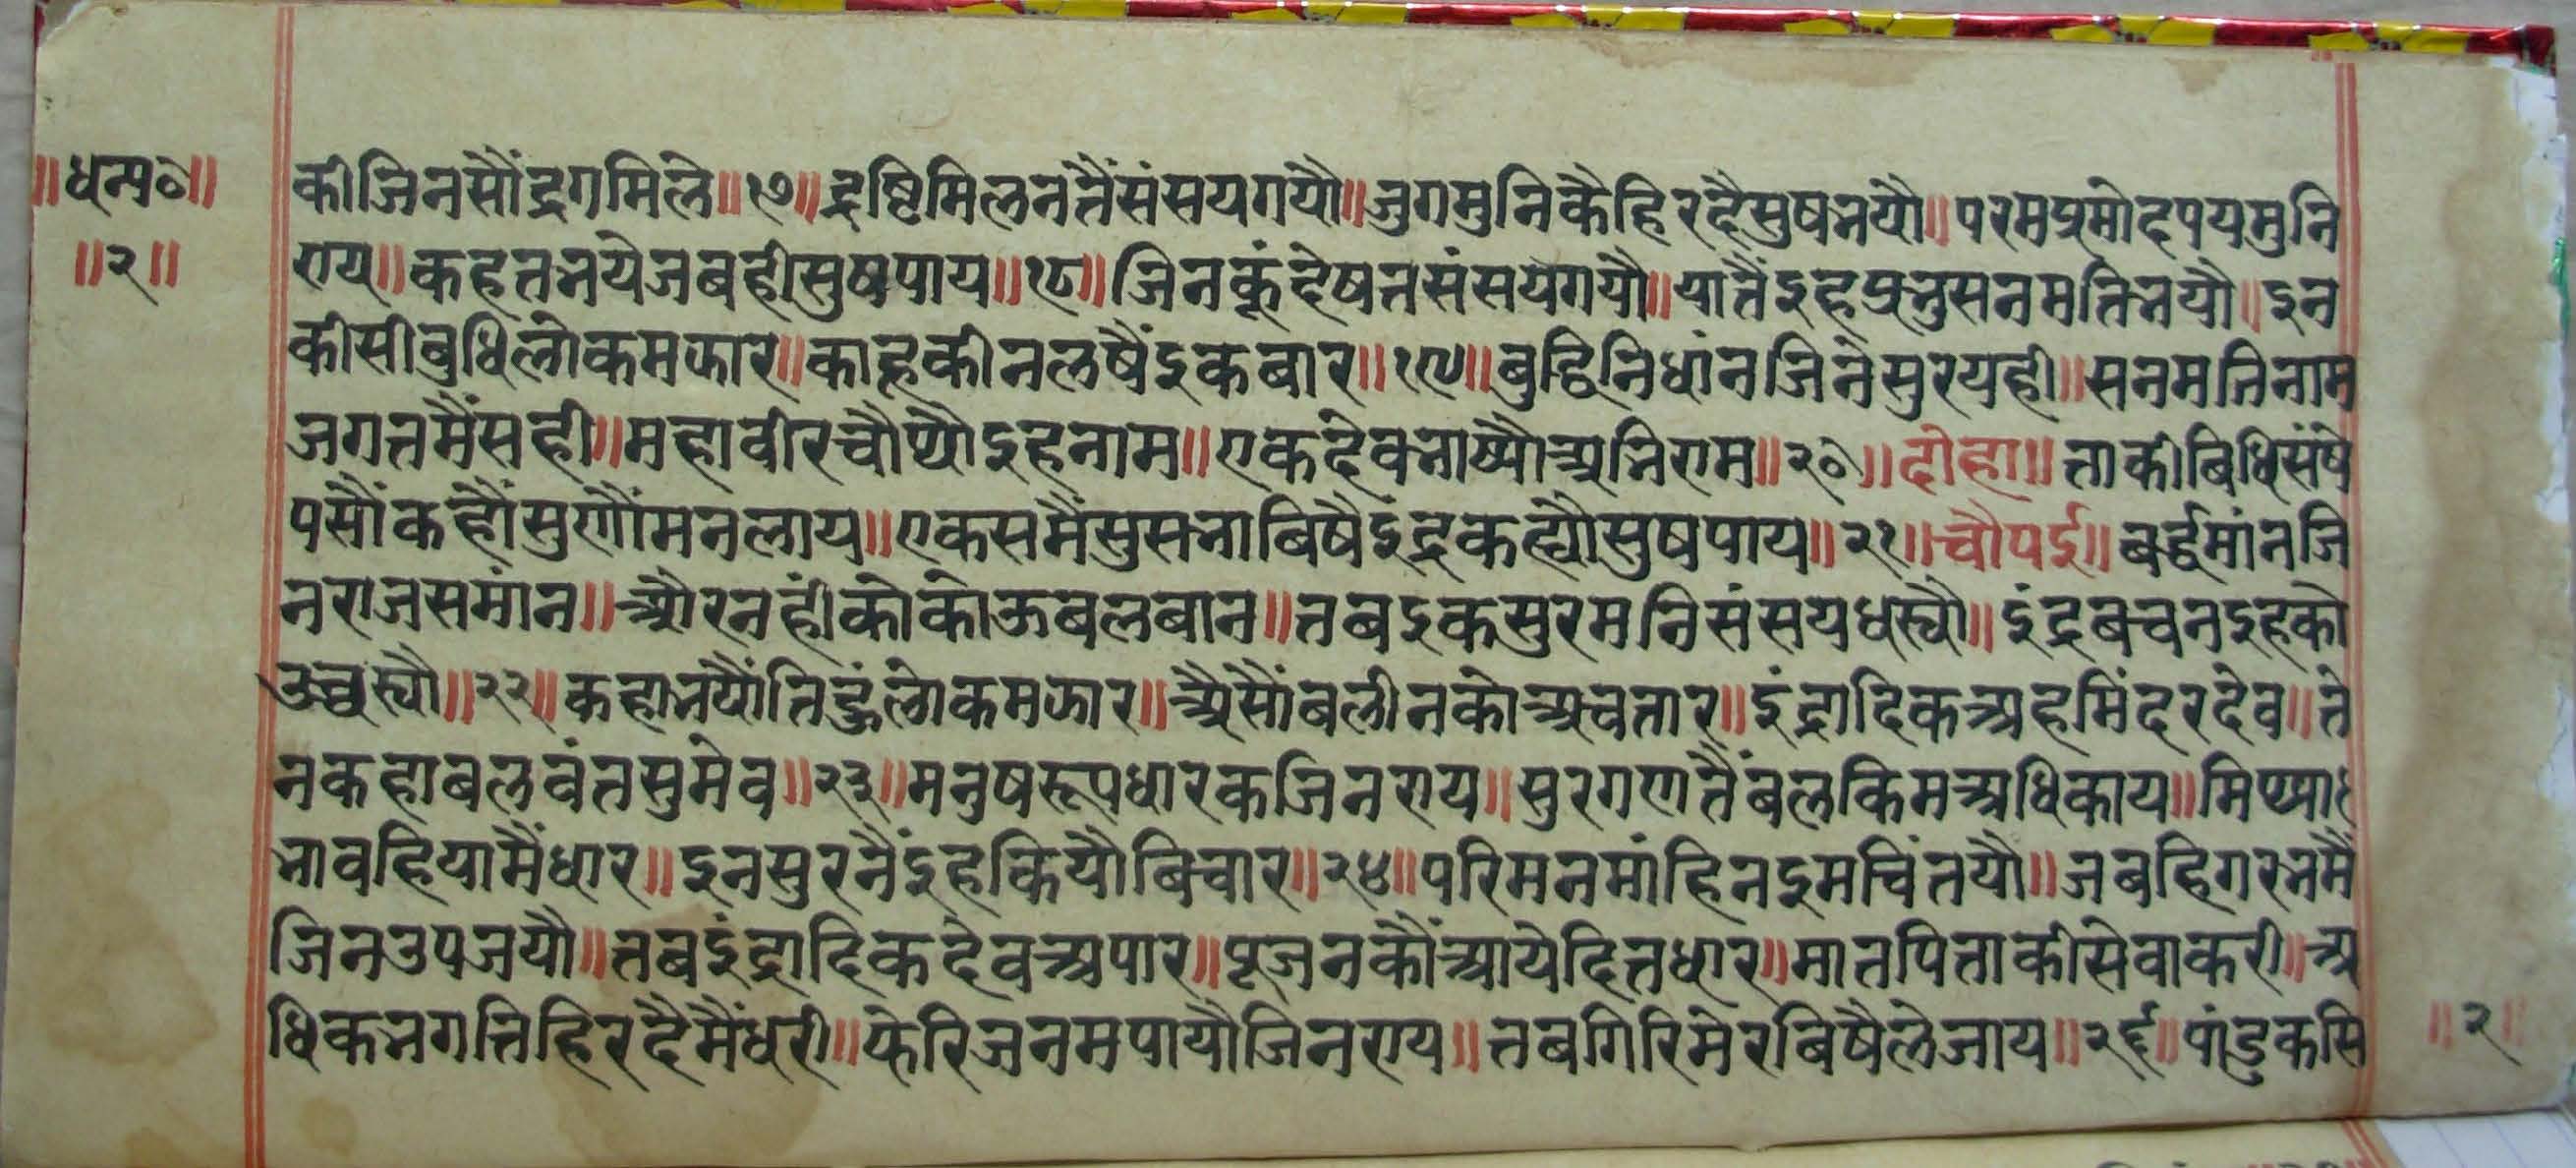 ॥धन्य०॥
॥२॥
की जिनसौं द्रग मिले॥१७॥ द्रष्टि मिलन तैं संसय गयौ॥ जुग मुनि कै हिरदै सुष भयौ॥ परम प्रमोद पय मुनि
राय॥ कहत भये जब ही सुष पाय॥१८॥ जिनकूं देषत संसय गयौ॥ यातैं इह प्रभु सनमति भयौ॥ इन
की सी बुधि लोक मझार॥ काहू की न लषैं इक बार॥१९॥ बुद्धि निधांन जिनेसुर यही॥ सनमति नाम
जगत मैं सही॥ महावीर चौथ्यौ इह नाम॥ एक देव भाष्यौ अभिराम॥२०॥ दोहा॥ ताकी बिधि संषे
प सौं कहौं सुणौं मन लाय॥ एक समैं सुसभा बिषै इंद्र कह्यौ सुष पाय॥२१॥ चौपई॥ बर्द्धमांन जि
नराज समांन॥ और नहीं को कोऊ बलबान॥ तब इक सुर मनि संसय धर्‍यौ॥ इंद्र बचन इह को
उच्चर्‍यौ॥२२॥ कहा भयौं तिहूं लोक मझार॥ अैसौं बली न को अवतार॥ इंद्रादिक अहमिंदर देव॥ ते
न कहा बलवंत सुमेव॥२३॥ मनुष रूप धारक जिनराय॥ सुरगण तैं बल किम अधिकाय॥ मिथ्या
भाव हिया मैं धार॥ इन सुर नैं इह कियौ बिचार॥२४॥ परि मन मांहि न इम चिंतयौ॥ जब हि गरभ मैं
जिन उपजयौ॥ तब इंद्रादिक देव अपार॥ पूजन कौं आये हित धार॥ मात पिता की सेवा करी॥ अ
धिक भगति हिरदै मैं धरी॥ फेरि जनम पायौ जिनराय॥ तब गिरि मेर बिषै ले जाय॥२६॥ पांडुक सि
॥२॥